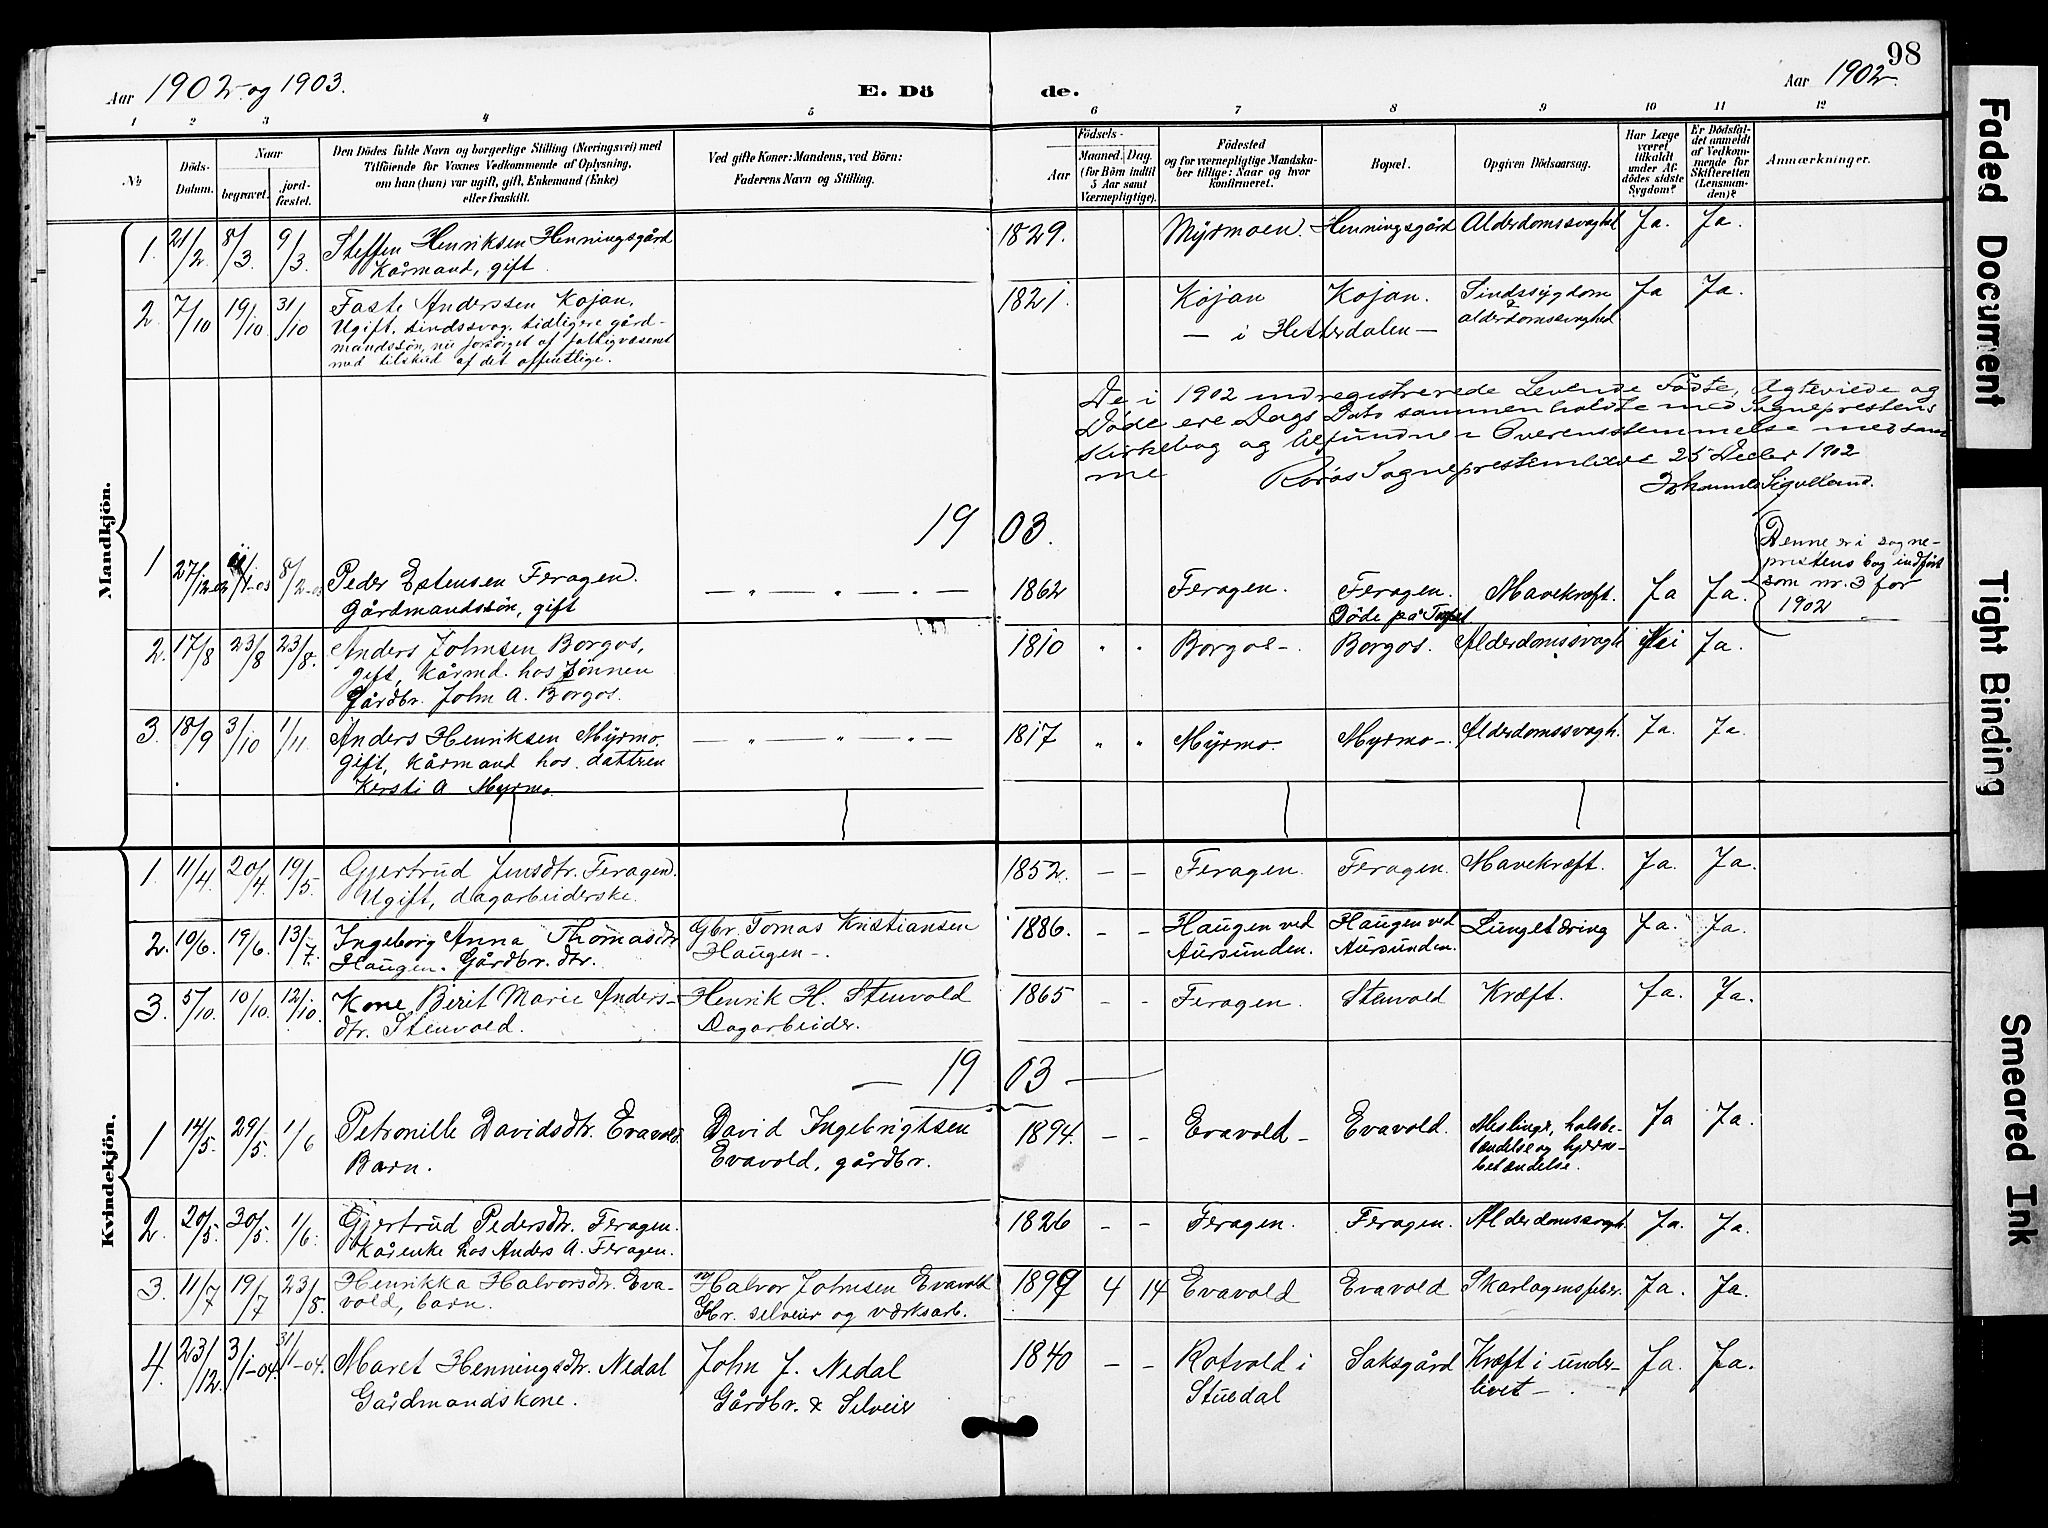 98
Aar 1902 og 1903.
E. Dö
de.
Aar 1902
1 2 3 4 5 6 7 8 9 10 11 12
№
Döds-Datum.
Naar
begravet.
jord-fæstet.
Den Dödes fulde Navn og borgerlige Stilling (Næringsvei) med
Tilföiende for Voxnes Vedkommende af Oplysning,
om han (hun) var ugift, gift, Enkemand (Enke)
eller fraskilt.
Ved gifte Koner: Mandens, ved Börn:
Faderens Navn og Stilling.
Födsels-
Aar
Maaned. Dag.
(for Börn indtil
5 Aar samt
Værnepligtige).
Födested
og for værnepligtige Mandska-
ber tillige: Naar og hvor
konfirmeret.
Bopæl.
Opgiven Dödsaarsag.
Har Læge
været
tilkaldt
under Af-
dödes sidste
Sygdom?
Er Dödsfal-
det anmeldt
af Vedkom-
mende for
Skifteretten
(Lensman-
den)?
Anmærkninger.
Mandkjön.
1. 21/2 8/3. 9/3 Steffen Henriksen Henningsgård 1829. Myrmoen. Henningsgård Alderdomssvaghed Ja. Ja.
Kårmand, gift.
2. 7/10 19/10. 31/10 Faste Anderssen Kojan. 1821. Kojan Kojan. Sindssygdom Ja Ja.
Ugift. sindssvag. tidligere gård- — i Hetterdalen — alderdomssvaghed
mandssön, nu forsörget af fattigvæsenet
med tilskud af det offentlige.
De i 1902 indregistrerede Levende Fødte, Ægteviede og
Døde ere Dags Dato sammenholdte med Sogneprestens
Kirkebog og befundne i Overensstemmelse med sam
me Røros Sogneprestembede 25 Decber 1902
19 03.
1 27/12-02 /1-03 8/2-03 Peder Estensen Feragen. — „ — — „ — „ — 1862 Feragen. Feragen. Mavekræft. Ja Ja.
Gårdmandssön, gift Döde på
Denne er i sogne-
prestens bog indfört
som nr. 3 for
1902
2. 17/8 23/8 23/8. Anders Johnsen Borgos, 1810 „ „ Borgos. Borgos. Alderdomssvagh. Nei Ja.
gift, kårmd. hos sönnen
Gårdbr. John A. Borgos.
3. 18/9 3/10 1/11. Anders Henriksen Myrmo. — „ — — „ — „ — 1817 „ „ Myrmo. Myrmo. Alderdomssvagh. Ja. Ja.
gift, kårmand hos dattren
Kersti A Myrmo
Kvindekjön.
1. 11/4 20/4. 19/5. Gjertrud Jensdtr. Feragen. 1852. — — Feragen. Feragen. Mavekræft. Ja. Ja.
Ugift, dagarbeiderske.
2. 10/6. 19/6. 13/7. Ingeborg Anna Thomasdtr Gbr. Tomas Kristiansen 1886. - - Haugen ved Haugen ved Lungetæring Ja. Ja.
Haugen. Gårdbr. dtr. Haugen -. Aursunden. Aursunden.
3. 5/10. 10/10. 12/10. Kone Berit Marie Anders- Henrik H. Stenvold 1865 - - Feragen. Stenvold Kræft. Ja. Ja.
dtr. Stenvold. Dagarbeider.
— 19 03 —
1 14/5. 29/5. 1/6 Petronille Davidsdtr. Evavold David Ingebrigtsen 1894. - - Evavold - Evavold. Meslinge, halsbe- Ja Ja.
Barn. Evavold, gårdbr. tændelse og hjerne-
betændelse.
2. 20/5. 30/5. 1/6. Gjertrud Pedersdtr. Feragen. 1826 - - Feragen. Feragen. Alderdomssvagh. Ja. Ja.
Kårenke hos Anders A. Feragen.
3. 11/7 19/7 23/8. Henrikka Halvorsdtr. Eva- Halvor Johnsen Evavold 1899 4 14 Evavold Evavold Skarlagensfeber. Ja. Ja.
vold, barn. Gbr. selveier og værksarb.
4. 23/12. 3/1-04. 31/1-04. Maret Henningsdtr. Nedal John J. Nedal 1840 - - Rotvold i Saksgård Kræft i under- Ja. Ja.
Gårdmandskone. Gårdbr. & Selveier Stuedal livet -
Faded Document
Tight Binding
Smeared Ink